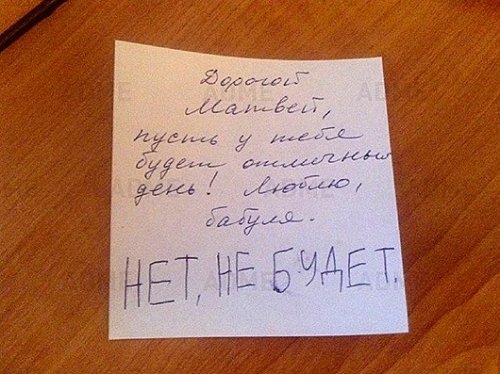 Дорогой
Матвей,
пусть у тебя
будет отличный
день! Люблю,
бабуля.
НЕТ, НЕ БУДЕТ.
ADME